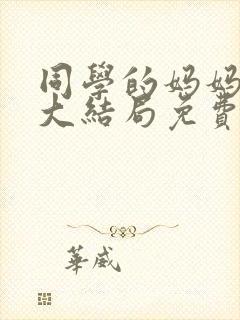 同學的媽媽
大結局免費
華威